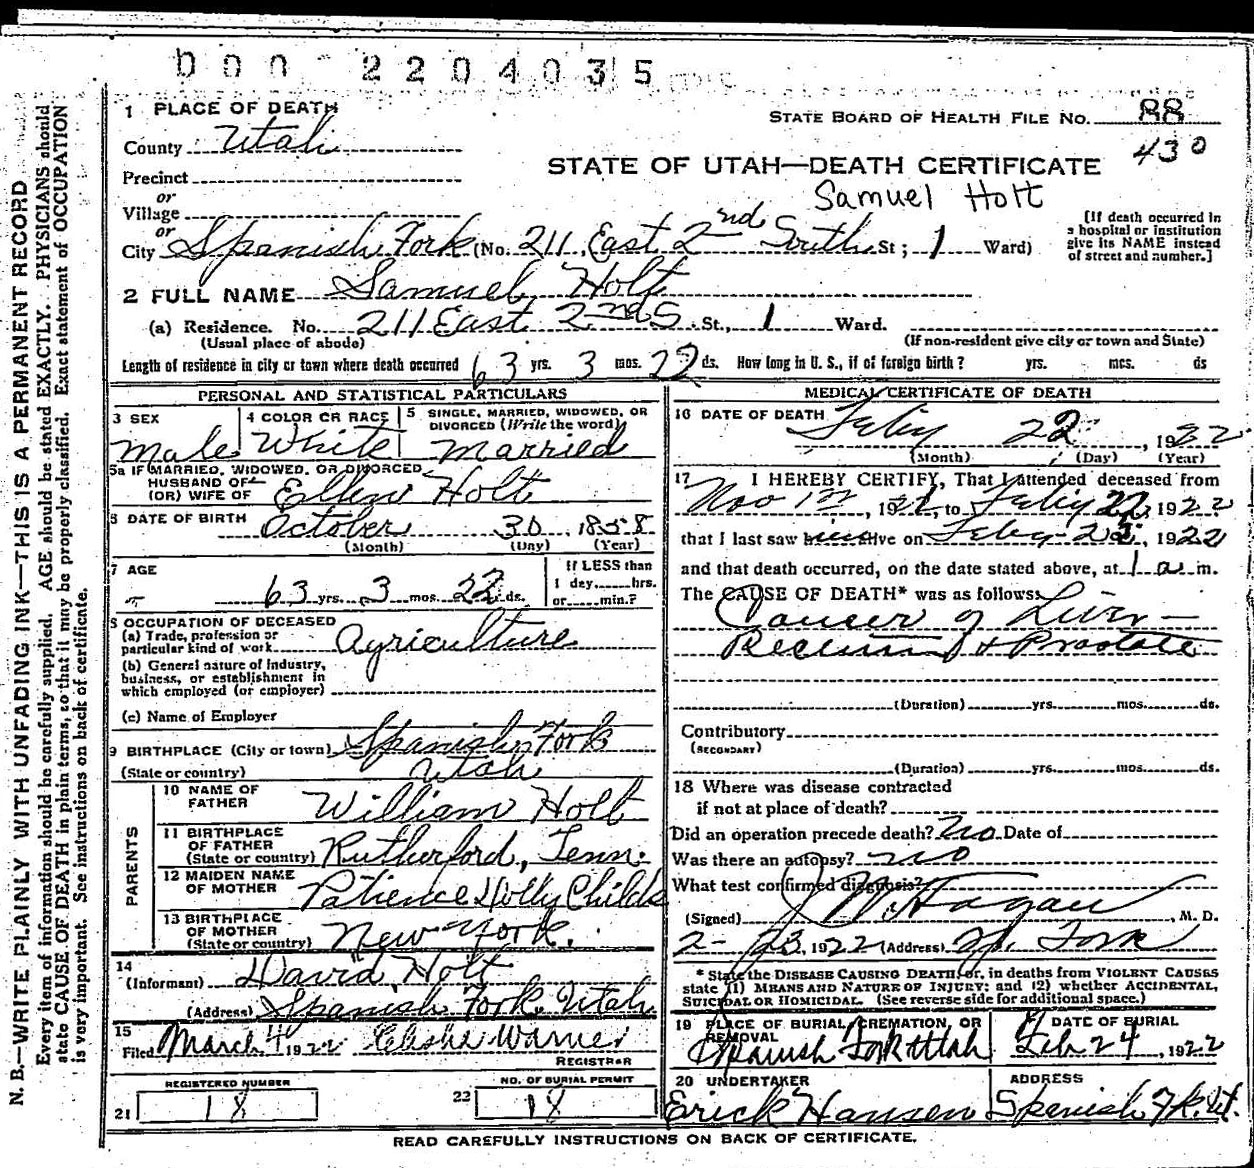 D 0 0 2 2 0 4 0 3 5
1 PLACE OF DEATH
STATE BOARD OF HEALTH FILE NO. 88
County Utah
430
STATE OF UTAH—DEATH CERTIFICATE
Precinct
or
Samuel Holt
Village
or
City Spanish Fork (No. 211, East 2nd South St; 1 Ward)
[If death occurred in
a hospital or institution
give its NAME instead
of street and number.]
2 FULL NAME Samuel Holt
(a) Residence. No. 211 East 2nd S. St., 1 Ward.
(Usual place of abode)
(If non-resident give city or town and State)
Length of residence in city or town where death occurred 63 yrs. 3 mos. 22 ds. How long in U. S., if of foreign birth? yrs. mos. ds
PERSONAL AND STATISTICAL PARTICULARS
3 SEX
Male
4 COLOR OR RACE
White
5 SINGLE, MARRIED, WIDOWED, OR
DIVORCED (Write the word)
Married
5a IF MARRIED, WIDOWED, OR DIVORCED
HUSBAND OF
(OR) WIFE OF Ellen Holt
6 DATE OF BIRTH October 30 1858
(Month) (Day) (Year)
7 AGE
63 yrs. 3 mos. 22 ds.
If LESS than
1 day, hrs.
or min.?
8 OCCUPATION OF DECEASED
(a) Trade, profession or
particular kind of work Agriculture
(b) General nature of Industry,
business, or establishment in
which employed (or employer)
(c) Name of Employer
9 BIRTHPLACE (City or town) Spanish Fork
(State or country) Utah
PARENTS
10 NAME OF
FATHER William Holt
11 BIRTHPLACE
OF FATHER
(State or country) Rutherford, Tenn.
12 MAIDEN NAME
OF MOTHER Patience Holly Childs
13 BIRTHPLACE
OF MOTHER
(State or country) New York.
14
(Informant) David Holt
(Address) Spanish Fork Utah
15
Filed March 4 1922 Elisha Warner
REGISTRAR
REGISTERED NUMBER
21 18
NO. OF BURIAL PERMIT
22 18
MEDICAL CERTIFICATE OF DEATH
16 DATE OF DEATH
Feby 22, 1922
(Month) (Day) (Year)
17 I HEREBY CERTIFY, That I attended deceased from
Nov 1st, 1921, to Feby 22, 1922
that I last saw him alive on Feby 22, 1922
and that death occurred, on the date stated above, at 1 a m.
The CAUSE OF DEATH* was as follows:
Cancer of Liver —
Rectum & Prostate
(Duration) yrs. mos. ds.
Contributory
(SECONDARY)
(Duration) yrs. mos. ds.
18 Where was disease contracted
if not at place of death?
Did an operation precede death? No Date of
Was there an autopsy? No
What test confirmed diagnosis?
(Signed) J W Hagan, M. D.
2-23, 1922 (Address) Sp. Fork
* State the DISEASE CAUSING DEATH, or, in deaths from VIOLENT CAUSES
state (1) MEANS AND NATURE OF INJURY; and (2) whether ACCIDENTAL,
SUICIDAL OR HOMICIDAL. (See reverse side for additional space.)
19 PLACE OF BURIAL, CREMATION, OR
REMOVAL
Spanish Fork Utah
DATE OF BURIAL
Feb 24, 1922
20 UNDERTAKER
Erick Hansen
ADDRESS
Spanish Fk. Ut.
READ CAREFULLY INSTRUCTIONS ON BACK OF CERTIFICATE.
N. B.—WRITE PLAINLY WITH UNFADING INK—THIS IS A PERMANENT RECORD
Every item of information should be carefully supplied. AGE should be stated EXACTLY. PHYSICIANS should
state CAUSE OF DEATH in plain terms, so that it may be properly classified. Exact statement of OCCUPATION
is very important. See instructions on back of certificate.